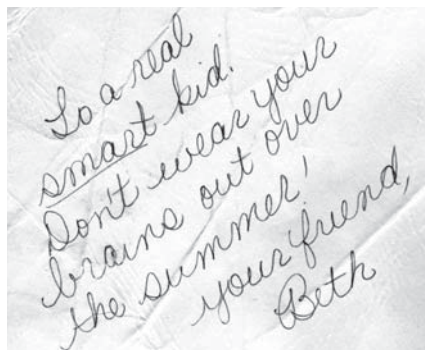 To a real
smart kid.
Don't wear your
brains out over
the summer!
your friend,
Beth